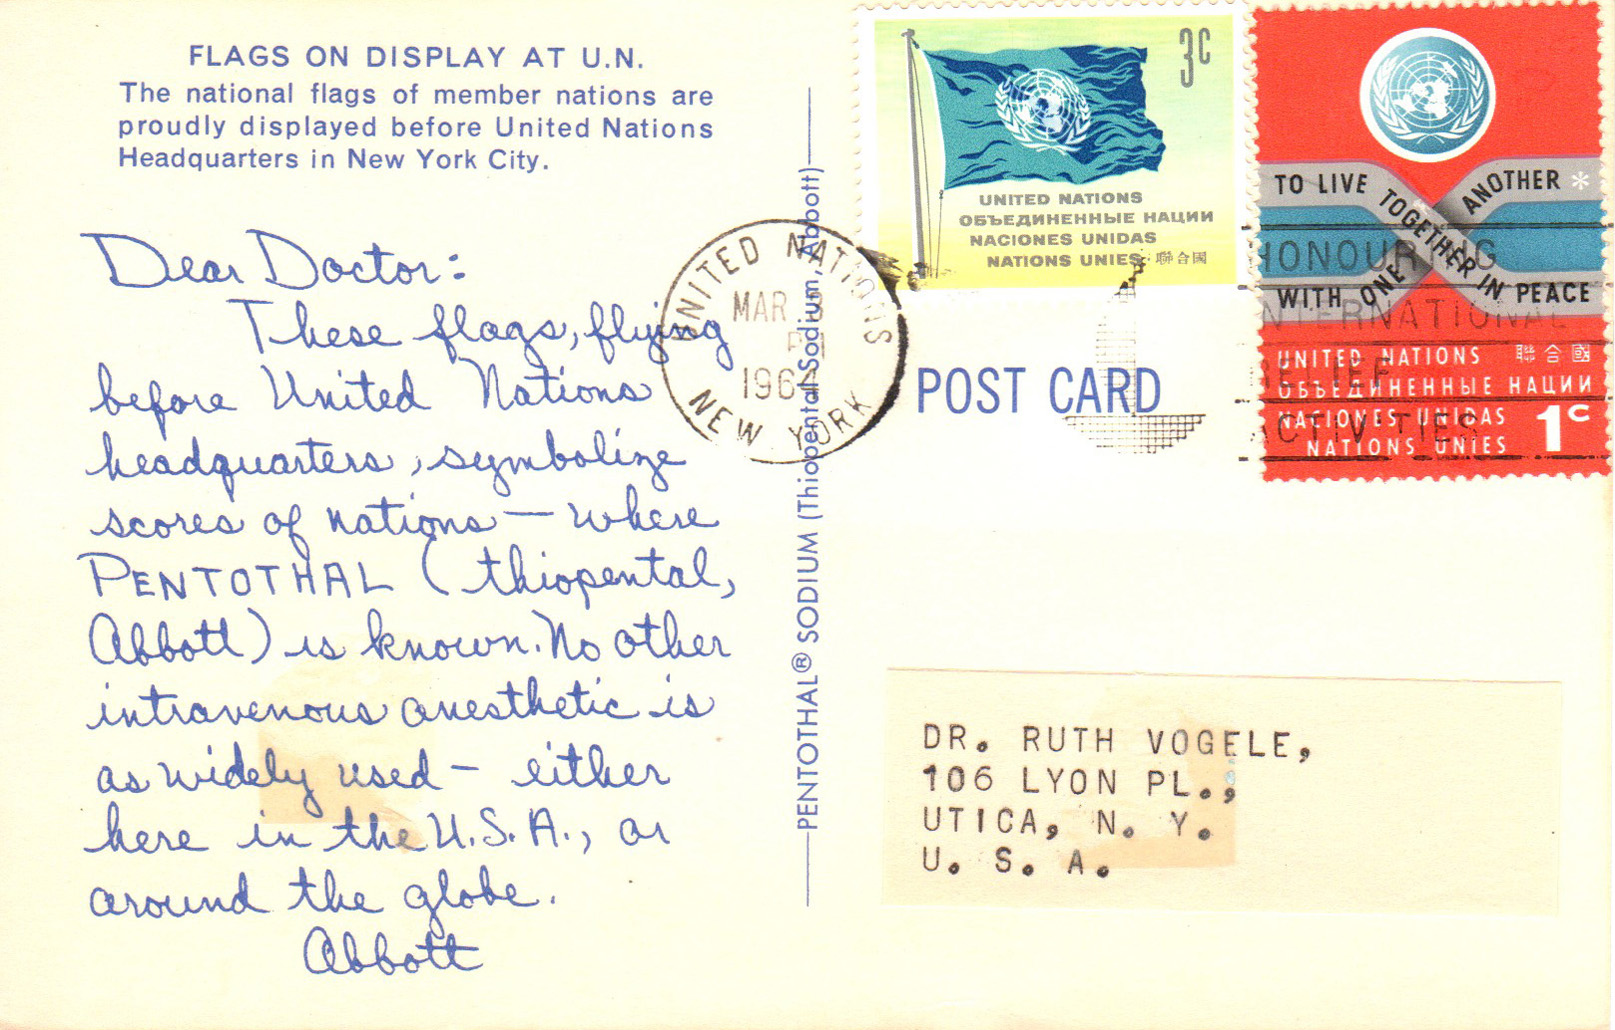 FLAGS ON DISPLAY AT U.N.
The national flags of member nations are
proudly displayed before United Nations
Headquarters in New York City.
Dear Doctor:
These flags, flying
before United Nations
headquarters, symbolize
scores of nations — where
PENTOTHAL (thiopental,
Abbott) is known. No other
intravenous anesthetic is
as widely used — either
here in the U.S.A., or
around the globe.
Abbott
PENTOTHAL® SODIUM (Thiopental Sodium, Abbott)
UNITED NATIONS
MAR 3
PM
1964
NEW YORK
POST CARD
3c
UNITED NATIONS
ОБЪЕДИНЕННЫЕ НАЦИИ
NACIONES UNIDAS
NATIONS UNIES 聯合國
TO LIVE TOGETHER IN PEACE
WITH ONE ANOTHER *
UNITED NATIONS 聯合國
ОБЪЕДИНЕННЫЕ НАЦИИ
NACIONES UNIDAS
NATIONS UNIES 1c
HONOURING
INTERNATIONAL
RELIEF
ACTIVITIES
DR. RUTH VOGELE,
106 LYON PL.,
UTICA, N. Y.
U. S. A.